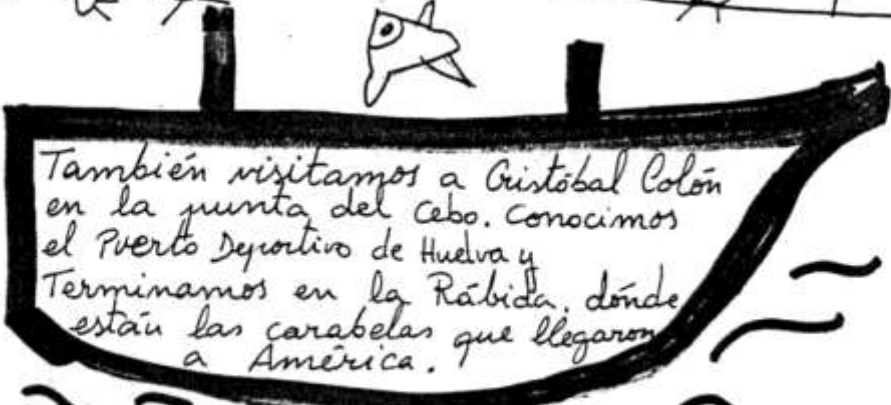 También visitamos a Cristóbal Colón
en la punta del Cebo. Conocimos
el Puerto Deportivo de Huelva y
Terminamos en la Rábida. dónde
están las carabelas que llegaron
a América.